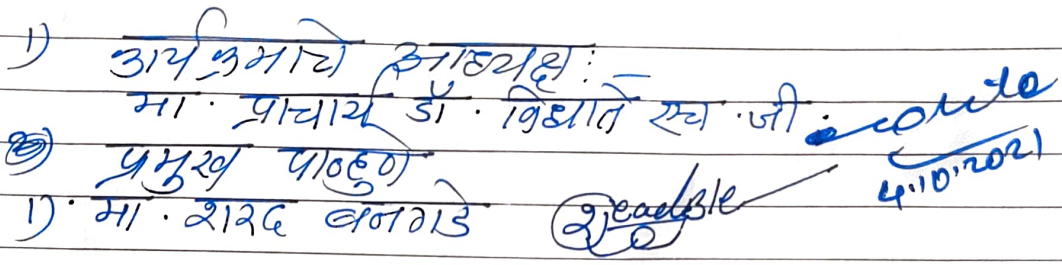 1) कार्यक्रमाचे अध्यक्ष:
मा. प्राचार्य डॉ. विधाते एच.जी.
4.10.2021
प्रमुख पाहुणे
1) मा. शरद बनगडे